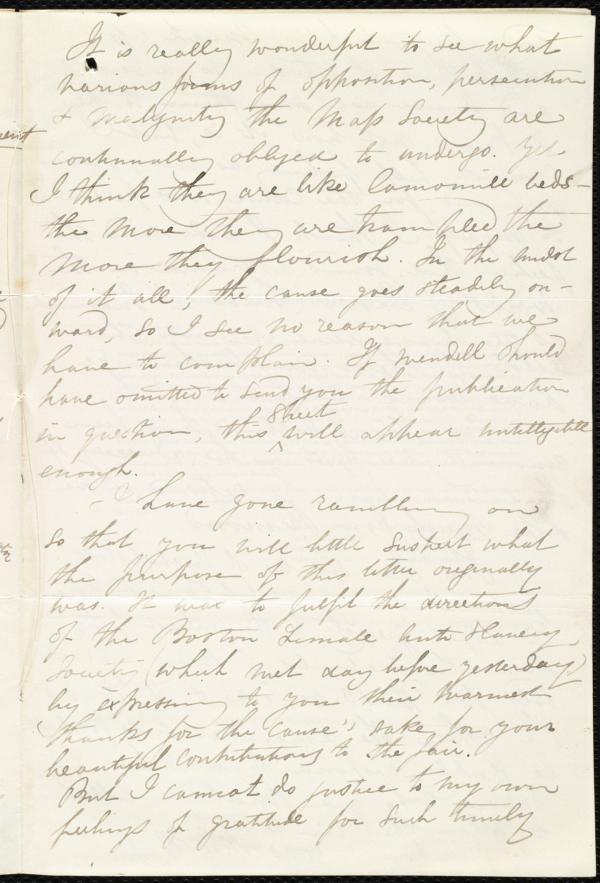 It is really wonderful to see what
various forms of opposition, persecution
& malignity the Mass Society are
continually obliged to undergo. Yet
I think they are like Camomile beds –
the more they are trampled the
more they flourish. In the midst
of it all, the cause goes steadily on-
ward, so I see no reason that we
have to complain. If Wendell should
have omitted to send you the publication
sheet
in question, this ^ will appear
enough.
– I have gone rambling on
so that you will little suspect what
the purpose of this letter originally
was. It was to fulfil the directions
of the Boston Female Anti Slavery
Society (which met day before yesterday)
by expressing to you their warmest
thanks for the cause's sake for your
beautiful contributions to the fair.
But I cannot do justice to my own
feelings of gratitude for such timely